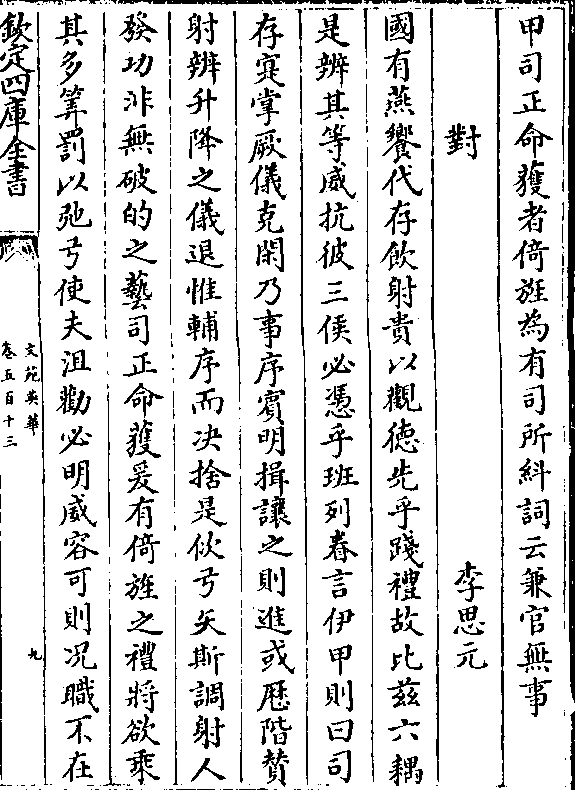 甲司正命獲者倚旌為有司所糾詞云兼官無事
對　李思元
國有燕饗代存飲射貴以觀德先乎踐禮故比兹六耦
是辨其等威抗彼三侯必憑乎班列眷言伊甲則曰司
存寔掌厥儀克閑乃事序賓明揖讓之則進或歴階賛
射辨升降之儀退惟輔序而決捨是佽弓矢斯調射人
發功非無破的之藝司正命獲爰有倚旌之禮將欲乘
其多筭罰以弛弓使夫沮勸必明威容可則况職不在
欽定四庫全書
文苑英華
卷五百十三
九